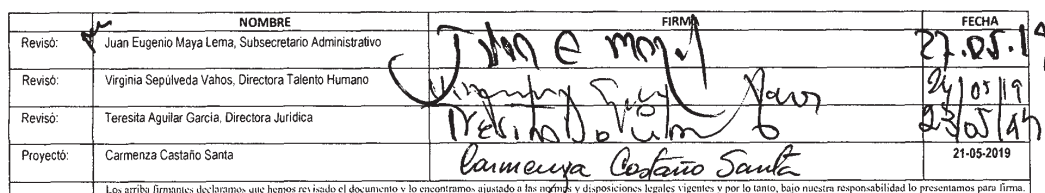 NOMBRE FIRMA FECHA
Revisó: Juan Eugenio Maya Lema, Subsecretario Administrativo Juan E Maya 27.05.19
Revisó: Virginia Sepúlveda Vahos, Directora Talento Humano 24/05/19
Revisó: Teresita Aguilar García, Directora Jurídica Teresita Aguilar 23/05/19
Proyectó: Carmenza Castaño Santa Carmenza Castaño Santa 21-05-2019
Los arriba firmantes declaramos que hemos revisado el documento y lo encontramos ajustado a las normas y disposiciones legales vigentes y por lo tanto, bajo nuestra responsabilidad lo presentamos para firma.